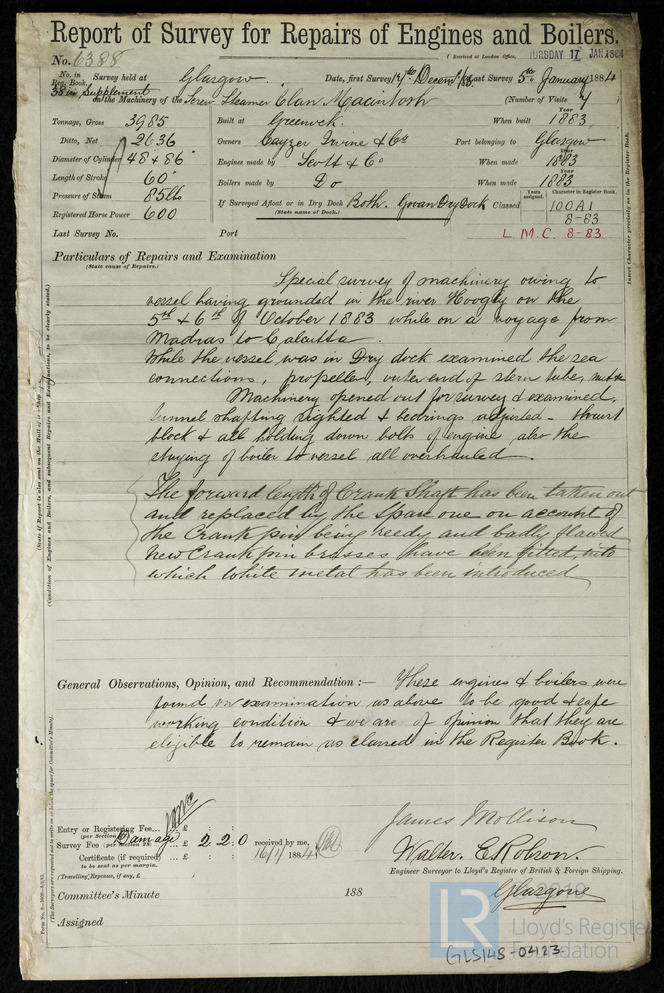 Report of Survey for Repairs of Engines and Boilers.
No. 6388
(Received at London Office, THURSDAY 17 JAN 1884
No. in Reg. Book. Survey held at Glasgow. Date, first Survey 14th Decemr/83. Last Survey 5th January 1884
38 in Supplement on the Machinery of the Screw Steamer Clan Macintosh (Number of Visits 7)
Tonnage, Gross 3985 Built at Greenock. When built 1883
Ditto, Net 2636 Owners Cayzer Irvine & Co Port belonging to Glasgow
Diameter of Cylinder 48 & 86" Engines made by Scott & Co When made Year 1883
Length of Stroke 60" Boilers made by Do When made Year 1883
Pressure of Steam 85 lbs If Surveyed Afloat or in Dry Dock Both. Govan Dry Dock Classed Years assigned. Character in Register Book. 100A1
(State name of Dock.)
Registered Horse Power 600 8-83
Last Survey No. Port L.M.C. 8-83
Particulars of Repairs and Examination
(State cause of Repairs.)
Special survey of machinery owing to
vessel having grounded in the river Hoogly on the
5th & 6th of October 1883 while on a voyage from
Madras to Calcutta.
While the vessel was in Dry dock examined the sea
connections, propeller, outer end of stern tube,
Machinery opened out for survey & examined,
tunnel shafting sighted & bearings adjusted - thrust
block & all holding down bolts of engine also the
staying of boiler to vessel all overhauled.
The forward length of Crank Shaft has been taken out
and replaced by the spare one on account of
the Crank pin being reedy and badly flawed
New Crank pin brasses have been fitted into
which White metal has been introduced
General Observations, Opinion, and Recommendation :— These engines & boilers were
found on examination as above to be good & safe
working condition & we are of opinion that they are
eligible to remain as classed in the Register Book.
Entry or Registering Fee... £ : :
(per Section
Survey Fee (per Section 28) Damage £ 2 : 2 : 0 received by me,
Certificate (if required) ... £ : : 16/1/1884
to be sent as per margin.
(Travelling Expenses, if any, £ )
James Mollison
Walter. C Robson.
Engineer Surveyor to Lloyd's Register of British & Foreign Shipping.
Glasgow
Committee's Minute 188
Assigned
Insert Character precisely as in the Register Book.
LR
Lloyd's Register
Foundation
GLS148-0423